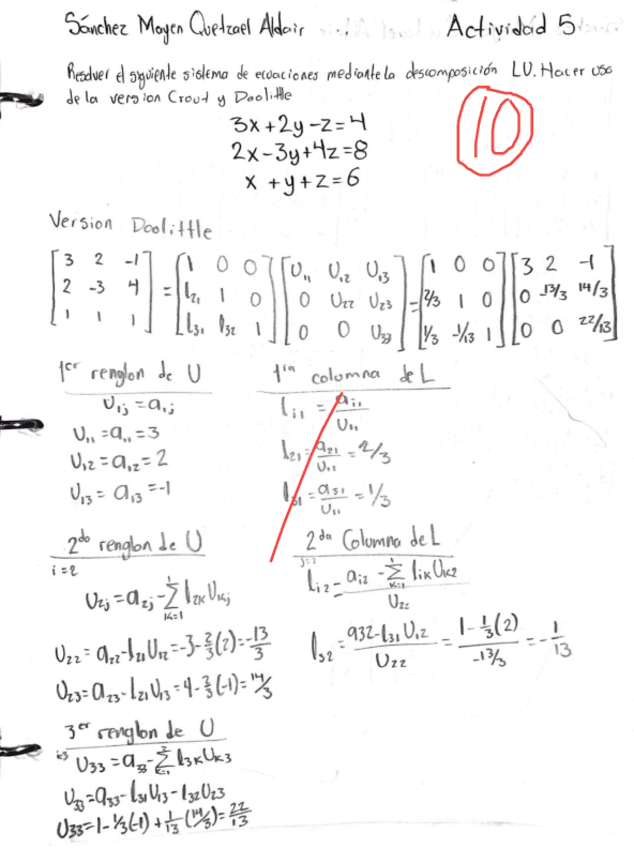 Sánchez Moyen Quetzael Aldair Actividad 5
Resolver el siguiente sistema de ecuaciones mediante la descomposición LU. Hacer uso
de la version Crout y Doolittle
10
3x+2y-z=4
2x-3y+4z=8
x+y+z=6
Version Doolittle
[3 2 -1] = [1 0 0] [U₁₁ U₁₂ U₁₃] = [1 0 0] [3 2 -1]
[2 -3 4] [l₂₁ 1 0] [0 U₂₂ U₂₃] [2/3 1 0] [0 -13/3 14/3]
[1 1 1] [l₃₁ l₃₂ 1] [0 0 U₃₃] [1/3 -1/13 1] [0 0 22/13]
1er renglon de U
U₁ⱼ=a₁ⱼ
U₁₁=a₁₁=3
U₁₂=a₁₂=2
U₁₃=a₁₃=-1
1ra columna de L
lᵢ₁=aᵢ₁/U₁₁
l₂₁=a₂₁/U₁₁=2/3
l₃₁=a₃₁/U₁₁=1/3
2do renglon de U
i=2
U₂ⱼ=a₂ⱼ-∑ₖ₌₁¹ l₂ₖUₖⱼ
U₂₂=a₂₂-l₂₁U₁₂=-3-2/3(2)=-13/3
U₂₃=a₂₃-l₂₁U₁₃=4-2/3(-1)=14/3
2da Columna de L
j=2
lᵢ₂=(aᵢ₂-∑ₖ₌₁¹ lᵢₖUₖ₂)/U₂₂
l₃₂=(932-l₃₁U₁₂)/U₂₂=(1-1/3(2))/(-13/3)=-1/13
3er renglon de U
i=3
U₃₃=a₃₃-∑ₖ₌₁² l₃ₖUₖ₃
U₃₃=a₃₃-l₃₁U₁₃-l₃₂U₂₃
U₃₃=1-1/3(-1)+1/13(14/3)=22/13